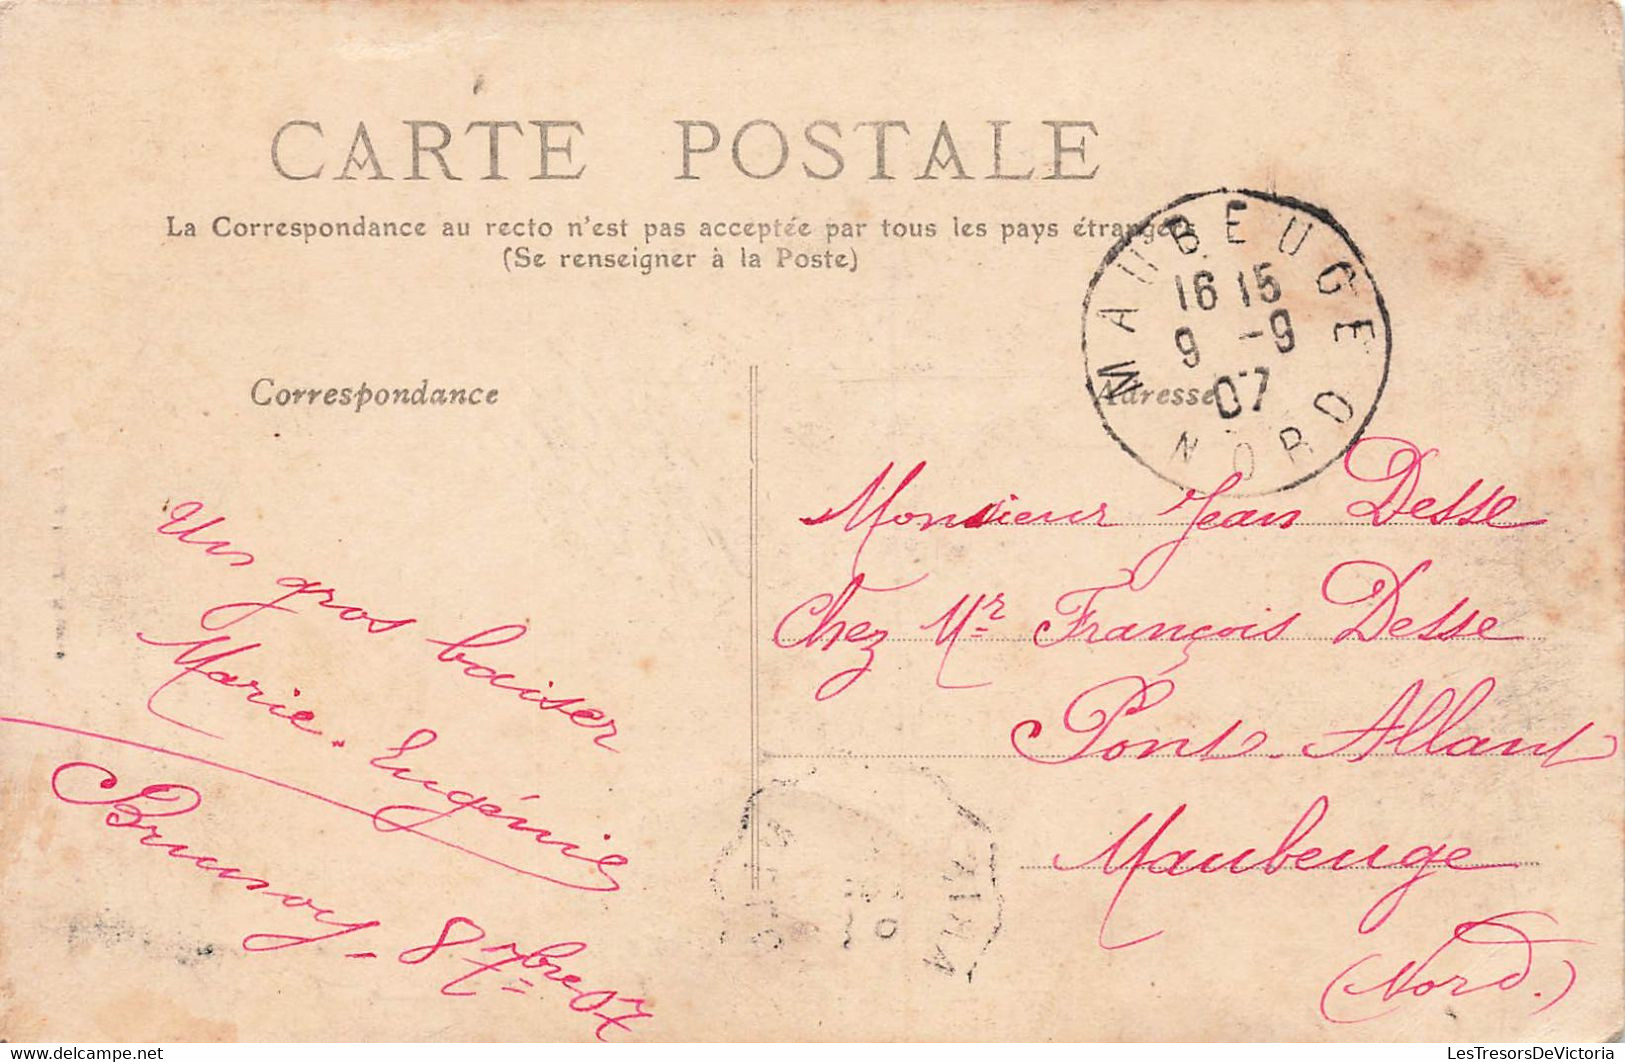 CARTE POSTALE
La Correspondance au recto n'est pas acceptée par tous les pays étrangers
(Se renseigner à la Poste)
Correspondance
Adresse
MAUBEUGE
16 15
9 -9
07
NORD
Un gros baiser
Marie-Eugénie
Brunoy - 8 7bre 07
Monsieur Jean Desse
Chez Mr François Desse
Pont-Allant
Maubeuge
(Nord.)
delcampe.net
LesTresorsDeVictoria